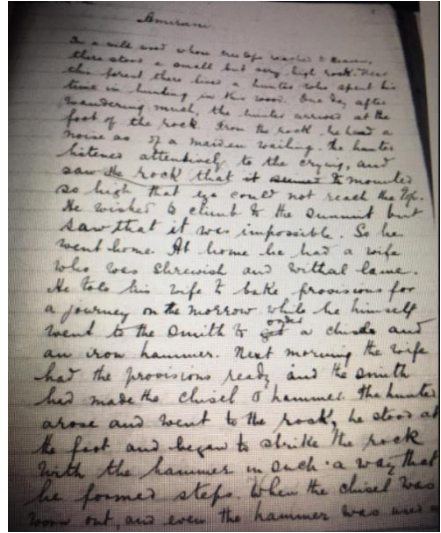 Amirani.
In a wild wood where treetops reached to Heaven,
there stood a small but very high rock. Near
this forest there lived a hunter who spent his
time in hunting in this wood. One day, after
wandering much, the hunter arrived at the
foot of the rock. From the rock he heard a
noise as of a maiden wailing. The hunter
listened attentively to the crying, and
saw the rock that it seemed to mounted
so high that eye could not reach the top.
He wished to climb to the summit but
saw that it was impossible. So he
went home. At home he had a wife
who was shrewish and withal lame.
He told his wife to bake provisions for
a journey on the morrow while he himself
went to the smith to get order a chisel and
an iron hammer. Next morning the wife
had the provisions ready and the smith
had made the chisel & hammer. The hunter
arose and went to the rock, he stood at
the foot and began to strike the rock
with the hammer in such a way that
he formed steps. When the chisel was
worn out, and even the hammer was used